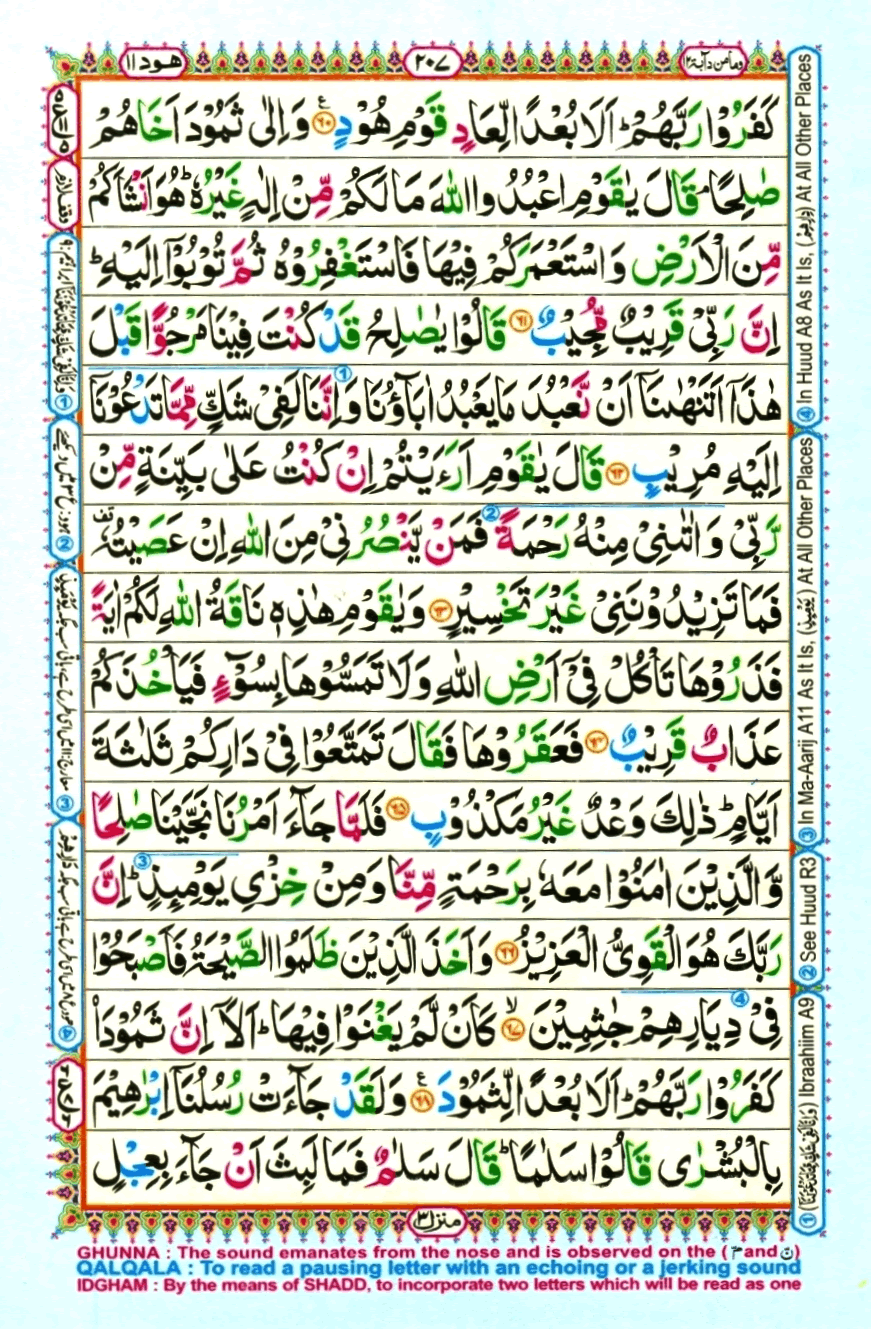 ومامن دآبۃ ۱۲
۲۰۷
هود ۱۱
كَفَرُوْا رَبَّهُمْ ؕ اَلَا بُعْدًا لِّعَادٍ قَوْمِ هُوْدٍ ﴿۶۰﴾ وَاِلٰى ثَمُوْدَ اَخَاهُمْ
صٰلِحًا ۘ قَالَ يٰقَوْمِ اعْبُدُوا اللّٰهَ مَا لَكُمْ مِّنْ اِلٰهٍ غَيْرُهٗ ؕ هُوَ اَنْشَاَكُمْ
مِّنَ الْاَرْضِ وَ اسْتَعْمَرَكُمْ فِيْهَا فَاسْتَغْفِرُوْهُ ثُمَّ تُوْبُوْۤا اِلَيْهِ ؕ
اِنَّ رَبِّىْ قَرِيْبٌ مُّجِيْبٌ ﴿۶۱﴾ قَالُوْا يٰصٰلِحُ قَدْ كُنْتَ فِيْنَا مَرْجُوًّا قَبْلَ
هٰذَاۤ اَتَنْهٰىنَاۤ اَنْ نَّعْبُدَ مَا يَعْبُدُ اٰبَآؤُنَا وَ اِنَّنَا لَفِىْ شَكٍّ مِّمَّا تَدْعُوْنَاۤ
اِلَيْهِ مُرِيْبٍ ﴿۶۲﴾ قَالَ يٰقَوْمِ اَرَءَيْتُمْ اِنْ كُنْتُ عَلٰى بَيِّنَةٍ مِّنْ
رَّبِّىْ وَ اٰتٰىنِىْ مِنْهُ رَحْمَةً فَمَنْ يَّنْصُرُنِىْ مِنَ اللّٰهِ اِنْ عَصَيْتُهٗ
فَمَا تَزِيْدُوْنَنِىْ غَيْرَ تَخْسِيْرٍ ﴿۶۳﴾ وَيٰقَوْمِ هٰذِهٖ نَاقَةُ اللّٰهِ لَكُمْ اٰيَةً
فَذَرُوْهَا تَاْكُلْ فِىْۤ اَرْضِ اللّٰهِ وَلَا تَمَسُّوْهَا بِسُوْٓءٍ فَيَاْخُذَكُمْ
عَذَابٌ قَرِيْبٌ ﴿۶۴﴾ فَعَقَرُوْهَا فَقَالَ تَمَتَّعُوْا فِىْ دَارِكُمْ ثَلٰثَةَ
اَيَّامٍ ؕ ذٰلِكَ وَعْدٌ غَيْرُ مَكْذُوْبٍ ﴿۶۵﴾ فَلَمَّا جَآءَ اَمْرُنَا نَجَّيْنَا صٰلِحًا
وَّ الَّذِيْنَ اٰمَنُوْا مَعَهٗ بِرَحْمَةٍ مِّنَّا وَمِنْ خِزْىِ يَوْمِئِذٍ ؕ اِنَّ
رَبَّكَ هُوَ الْقَوِىُّ الْعَزِيْزُ ﴿۶۶﴾ وَاَخَذَ الَّذِيْنَ ظَلَمُوا الصَّيْحَةُ فَاَصْبَحُوْا
فِىْ دِيَارِهِمْ جٰثِمِيْنَ ﴿۶۷﴾ كَاَنْ لَّمْ يَغْنَوْا فِيْهَا ؕ اَلَاۤ اِنَّ ثَمُوْدَا۟
كَفَرُوْا رَبَّهُمْ ؕ اَلَا بُعْدًا لِّثَمُوْدَ ﴿۶۸﴾ وَلَقَدْ جَآءَتْ رُسُلُنَاۤ اِبْرٰهِيْمَ
بِالْبُشْرٰى قَالُوْا سَلٰمًا ؕ قَالَ سَلٰمٌ فَمَا لَبِثَ اَنْ جَآءَ بِعِجْلٍ
منزل ۳
① (وَاِنَّا لَفِىْ شَكٍّ مِّمَّا تَدْعُوْنَنَاۤ) Ibraahiim A9
② See Huud R3
③ In Ma-Aarij A11 As It Is, (يَوْمِئِذٍ) At All Other Places
④ In Huud A8 As It Is, (دَارِهِمْ) At All Other Places
GHUNNA : The sound emanates from the nose and is observed on the (مّ and نّ)
QALQALA : To read a pausing letter with an echoing or a jerking sound
IDGHAM : By the means of SHADD, to incorporate two letters which will be read as one